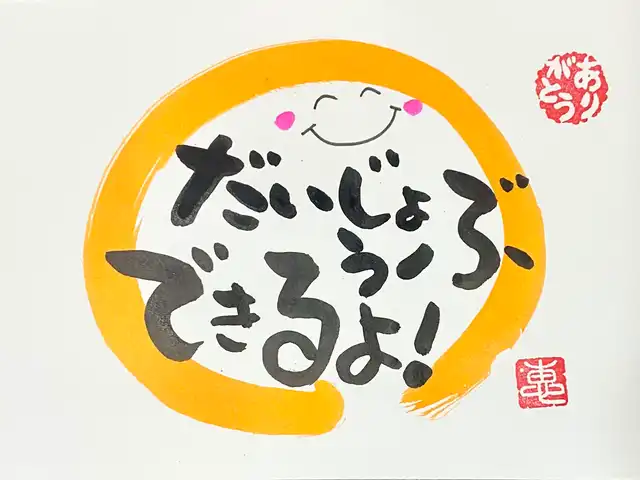 だいじょうぶ
できるよ!
ありがとう
恵